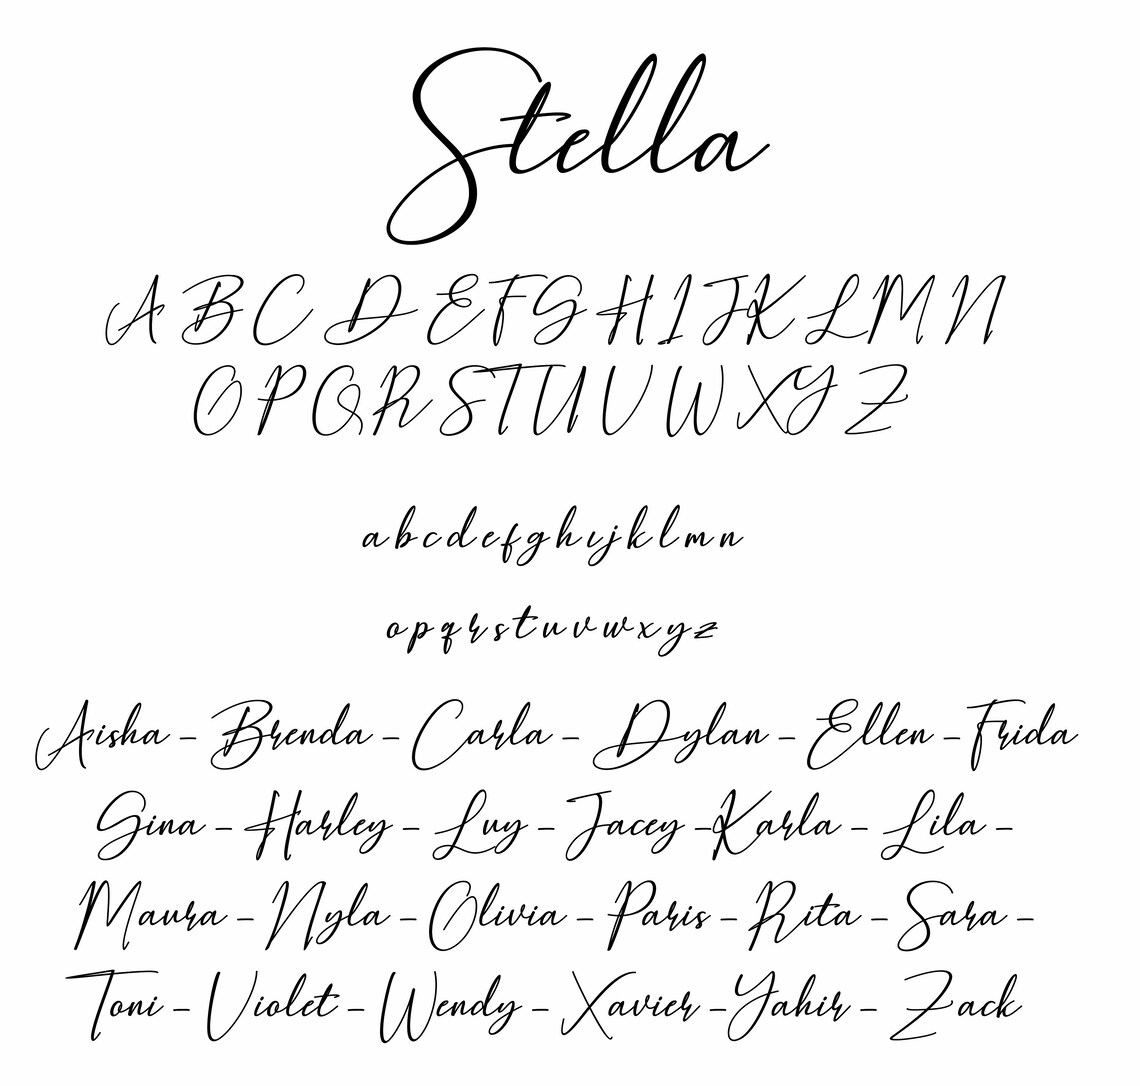 Stella
A B C D E F G H I J K L M N
O P Q R S T U V W X Y Z
a b c d e f g h i j k l m n
o p q r s t u v w x y z
Aisha - Brenda - Carla - Dylan - Ellen - Frida
Gina - Harley - Luy - Jacey - Karla - Lila -
Maura - Nyla - Olivia - Paris - Rita - Sara -
Toni - Violet - Wendy - Xavier - Yahir - Zack